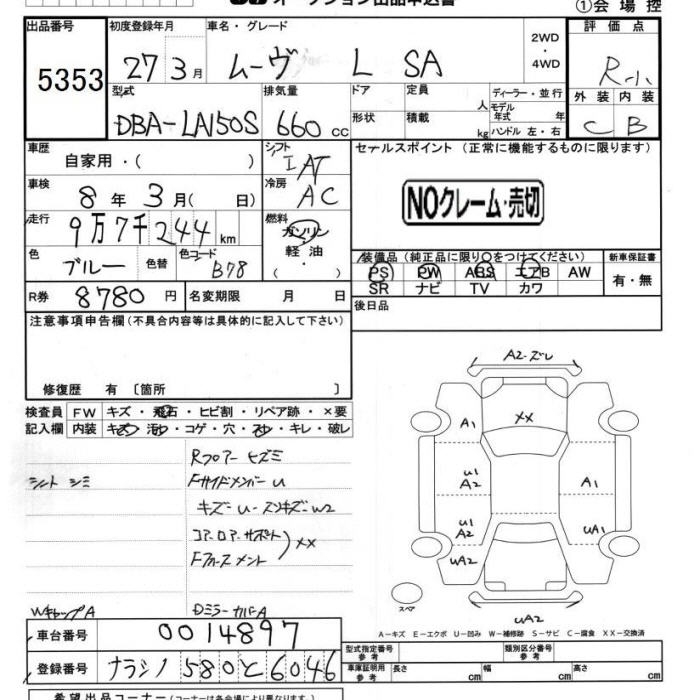 オークション出品申込書
①会場控
出品番号 初度登録年月 車名・グレード 2WD・4WD 評価点
5353 27 3月 ムーヴ L SA R-小
型式 排気量 ドア 定員 人 ディーラー・並行 外装 内装
DBA-LA150S 660 cc 形状 積載 kg モデル年式 年式 ハンドル 左・右 C B
車歴 シフト セールスポイント (正常に機能するものに限ります)
自家用・( ) IAT
車検 冷房
8年 3月( 日) AC NOクレーム・売切
走行 燃料
9万7千244km ガソリン
色 色替 色コード 軽油・ 装備品(純正品に限り○をつけてください) 新車保証書
ブルー B78 ( ) PS PW ABS エアB AW 有・無
SR ナビ TV カワ
R券 8780円 名変期限 月 日 後日品
注意事項申告欄(不具合内容等は具体的に記入して下さい)
修復歴 有 〔箇所 〕
検査員 FW キズ・飛石・ヒビ割・リペア跡・×要
記入欄 内装 キズ・汚れ・コゲ・穴・スレ・キレ・破レ
A2-ズレ
A1 XX
U1 A2 A1
U1 A2 UA1
UA2
スペア UA2
Rフロアー ヒズミ
シート シミ Fサイドメンバー U
キズ-U-スンキズ-W2
コアロアーサポート XX
Fフォースメント
WキャップA DミラーカバーA
A-キズ E-エクボ U-凹み W-補修跡 S-サビ C-腐食 XX-交換済
車台番号 0014897
型式指定番号 参考 類別区分番号 参考
登録番号 ナラシノ 580 と 6046 車庫証明用 参考 長さ cm 幅 cm 高さ cm
希望出品コーナー(コーナーは各会場により異なります)